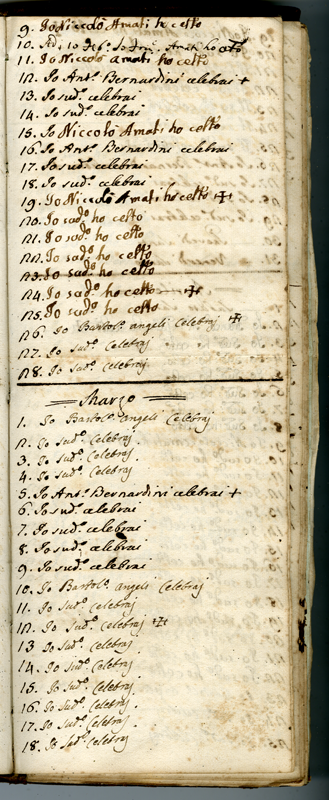 9. Io Niccolò Amati ho cełto
10. Adi 10 Feb.º Io Ant. Amati ho cełto
11. Io Niccolò Amati ho cełto
12. Io Ant.º Bernardini celebrai +
13. Io sud.º celebrai
14. Io sud.º celebrai
15. Io Niccolò Amati ho cełto
16. Io Ant.º Bernardini celebrai
17. Io sud.º celebrai
18. Io sud.º celebrai
19. Io Niccolò Amati ho cełto ✠
20. Io sud.º ho cełto
21. Io sud.º ho cełto
22. Io sud.º ho cełto
23. Io sud.º ho cełto
24. Io sud.º ho cełto ✠
25. Io sud.º ho cełto
26. Io Bartol.º Angeli Celebraj ✠
27. Io Sud.º Celebraj
28. Io Sud.º Celebraj
Marzo
1. Io Bartol.º Angeli Celebraj
2. Io Sud.º Celebraj
3. Io Sud.º Celebraj
4. Io Sud.º Celebraj
5. Io Ant.º Bernardini celebrai +
6. Io sud.º celebrai
7. Io sud.º celebrai
8. Io sud.º celebrai
9. Io sud.º celebrai
10. Io Bartol.º Angeli Celebraj
11. Io Sud.º Celebraj
12. Io Sud.º Celebraj ✠
13 Io Sud.º Celebraj
14. Io Sud.º Celebraj
15. Io Sud.º Celebraj
16. Io Sud.º Celebraj
17. Io Sud.º Celebraj
18. Io Sud.º Celebraj